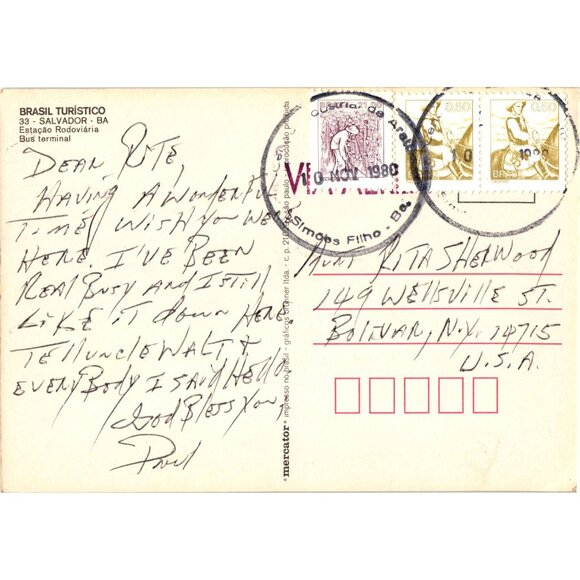 BRASIL TURÍSTICO
33 - SALVADOR - BA
Estação Rodoviária
Bus terminal
DEAR RITE,
HAVING A WONDERFUL
TIME WISH YOU WERE
HERE. I'VE BEEN
REAL BUSY AND I STILL
LIKE IT DOWN HERE
TELL UNCLE WALT &
EVERYBODY I SAID HELLO
GOD BLESS YOU,
mercator
impresso no brasil - gráficos brunner ltda. - c.p. são paulo - reprodução proibida
BRASIL 21,00
0,50
BRASIL
0,50
VIA
10 NOV 1980
Simões Filho - Ba.
10
1980
AUNT RITA SHERWOOD
149 WELLSVILLE ST.
BOLIVAR, N.Y. 14715
U.S.A.